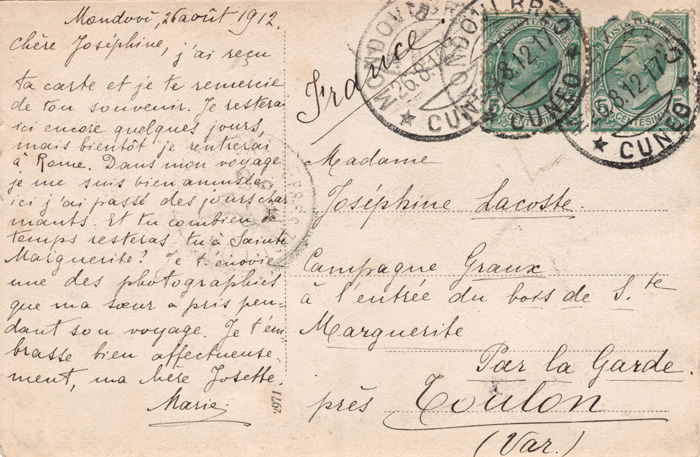 Mondovì, 26 août 1912.
Chère Joséphine, j'ai reçu
ta carte et je te remercie
de ton souvenir. Je resterai
ici encore quelques jours,
mais bientôt je rentrerai
à Rome. Dans mon voyage
je me suis bien amusée
ici j'ai passé des jours char
mants. Et tu combien de
temps resteras tu à Sainte
Marguerite? Je t'envoie
une des photographies
que ma sœur a pris pen=
dant son voyage. Je t'em
brasse bien affectueuse=
ment, ma chère Josette.
Marie.
France.
MONDOVI
26.8.12
CUNEO
MONDOVI BREO
8.12.17
CUNEO
8.12.17
CUNEO
POSTE ITALIANE
5
CENTESIMI
5
CENTESIMI
Madame
Joséphine Lacoste.
Campagne Graux
à l'entrée du bois de Ste
Marguerite
Par la Garde
près Toulon
(Var.)